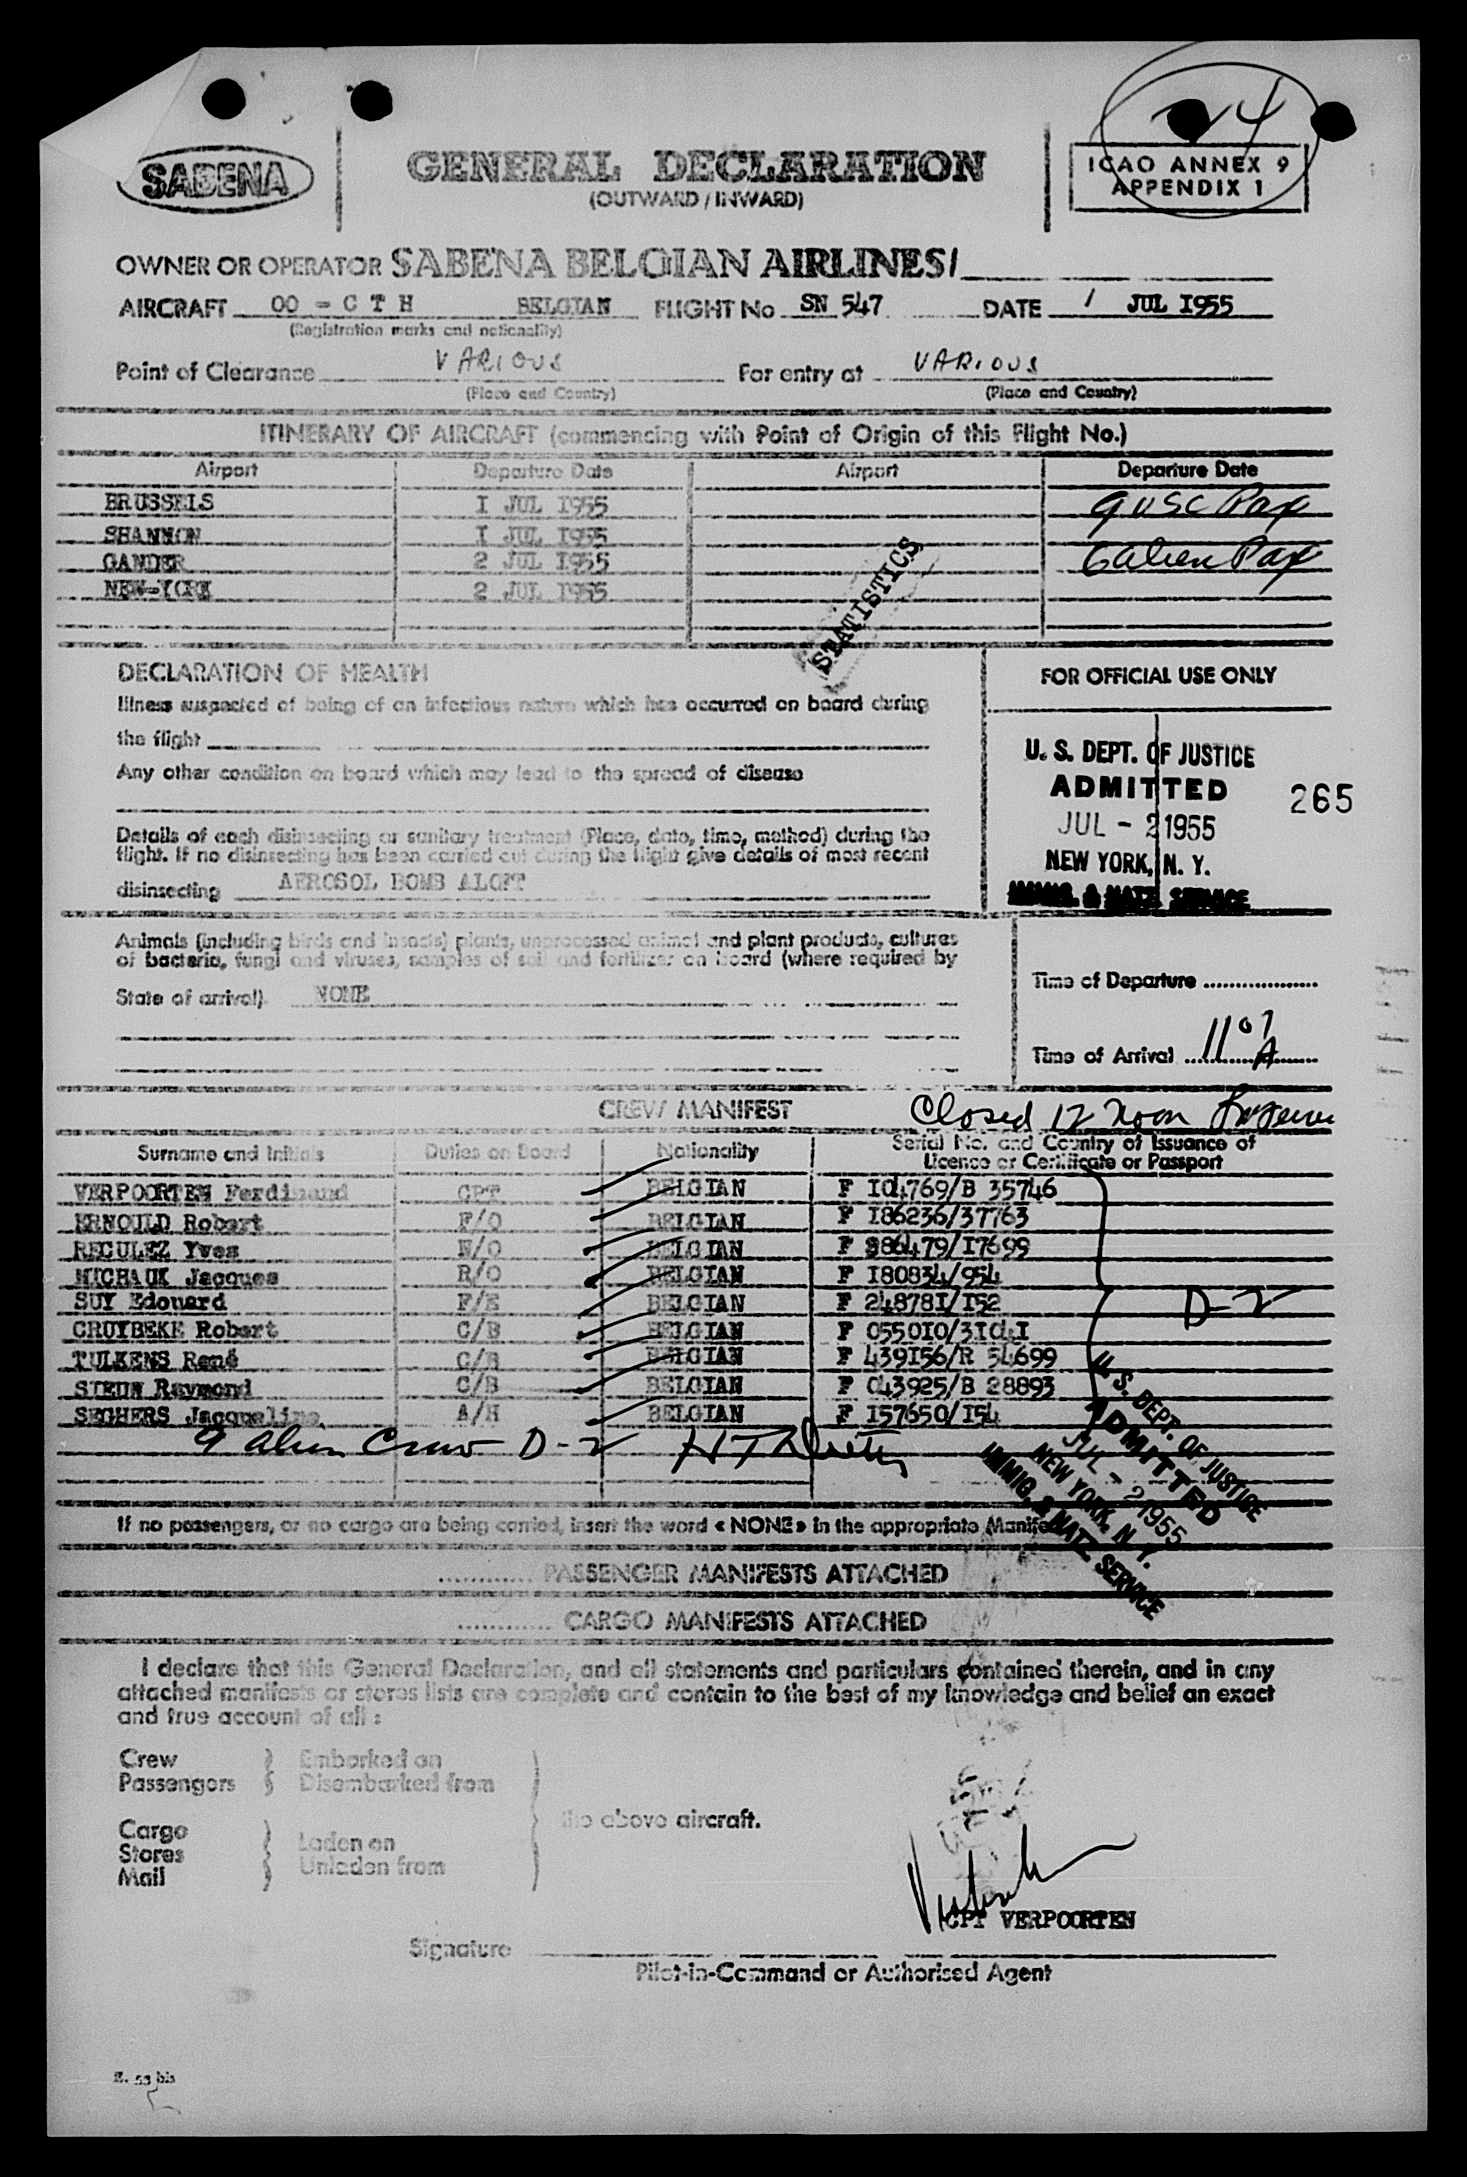 24
SABENA
GENERAL DECLARATION
(OUTWARD / INWARD)
ICAO ANNEX 9
APPENDIX 1
OWNER OR OPERATOR SABENA BELGIAN AIRLINES/
AIRCRAFT OO - C T H BELGIAN FLIGHT No SN 547 DATE 1 JUL 1955
(Registration marks and nationality)
Point of Clearance VARIOUS For entry at VARIOUS
(Place and Country) (Place and Country)
ITINERARY OF AIRCRAFT (commencing with Point of Origin of this Flight No.)
Airport Departure Date Airport Departure Date
BRUSSELS I JUL I955 9 USC Pax
SHANNON I JUL I955
GANDER 2 JUL I955 6 alien Pax
NEW-YORK 2 JUL I955
STATISTICS
DECLARATION OF HEALTH
Illness suspected of being of an infectious nature which has occurred on board during
the flight
Any other condition on board which may lead to the spread of disease
Details of each disinsecting or sanitary treatment (Place, date, time, method) during the
flight. If no disinsecting has been carried out during the flight give details of most recent
disinsecting AEROSOL BOMB ALOFT
FOR OFFICIAL USE ONLY
U. S. DEPT. OF JUSTICE
ADMITTED
JUL - 2 1955
NEW YORK, N. Y.
IMMIG. & NATZ. SERVICE
265
Animals (including birds and insects) plants, unprocessed animal and plant products, cultures
of bacteria, fungi and viruses, samples of soil and fertilizer on board (where required by
State of arrival). NONE
Time of Departure
Time of Arrival 1107 A
CREW MANIFEST Closed 12 noon
Surname and Initials Duties on Board Nationality Serial No. and Country of Issuance of
Licence or Certificate or Passport
VERPOORTEN Ferdinand CPT BELGIAN P I04769/B 35746
ERNOULD Robert F/O BELGIAN P I86236/37763
RECULEZ Yves N/O BELGIAN P 386479/I7699
MICHAUX Jacques R/O BELGIAN P I80834/954
SUY Edouard F/E BELGIAN P 24878I/I52
CRUYBEKE Robert C/B BELGIAN P 055OI0/3I04I
TULKENS René C/B BELGIAN P 439I56/R 54699
STEUN Raymond C/B BELGIAN P 043925/B 28893
SEGHERS Jacqueline A/H BELGIAN P I57650/I54
D-2
9 alien Crew D-2
U. S. DEPT. OF JUSTICE
ADMITTED
JUL - 2 1955
NEW YORK, N. Y.
IMMIG. & NATZ. SERVICE
If no passengers, or no cargo are being carried, insert the word « NONE » in the appropriate Manifest
PASSENGER MANIFESTS ATTACHED
CARGO MANIFESTS ATTACHED
I declare that this General Declaration, and all statements and particulars contained therein, and in any
attached manifests or stores lists are complete and contain to the best of my knowledge and belief an exact
and true account of all :
Crew Embarked on
Passengers Disembarked from
the above aircraft.
Cargo
Stores Laden on
Mail Unladen from
CPT VERPOORTEN
Signature
Pilot-in-Command or Authorised Agent